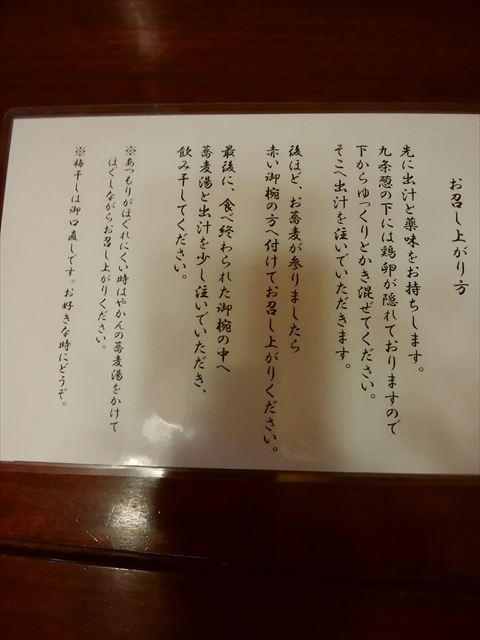 お召し上がり方
先に出汁と薬味をお持ちします。
九条葱の下には鶏卵が隠れておりますので
下からゆっくりとかき混ぜてください。
そこへ出汁を注いでいただきます。
後ほど、お蕎麦が参りましたら
赤い御椀の方へ付けてお召し上がりください。
最後に、食べ終わられた御椀の中へ
蕎麦湯と出汁を少し注いでいただき、
飲み干してください。
※あつもりがほぐれにくい時はやかんの蕎麦湯をかけて
ほぐしながらお召し上がりください。
※梅干しは御口直しです。お好きな時にどうぞ。